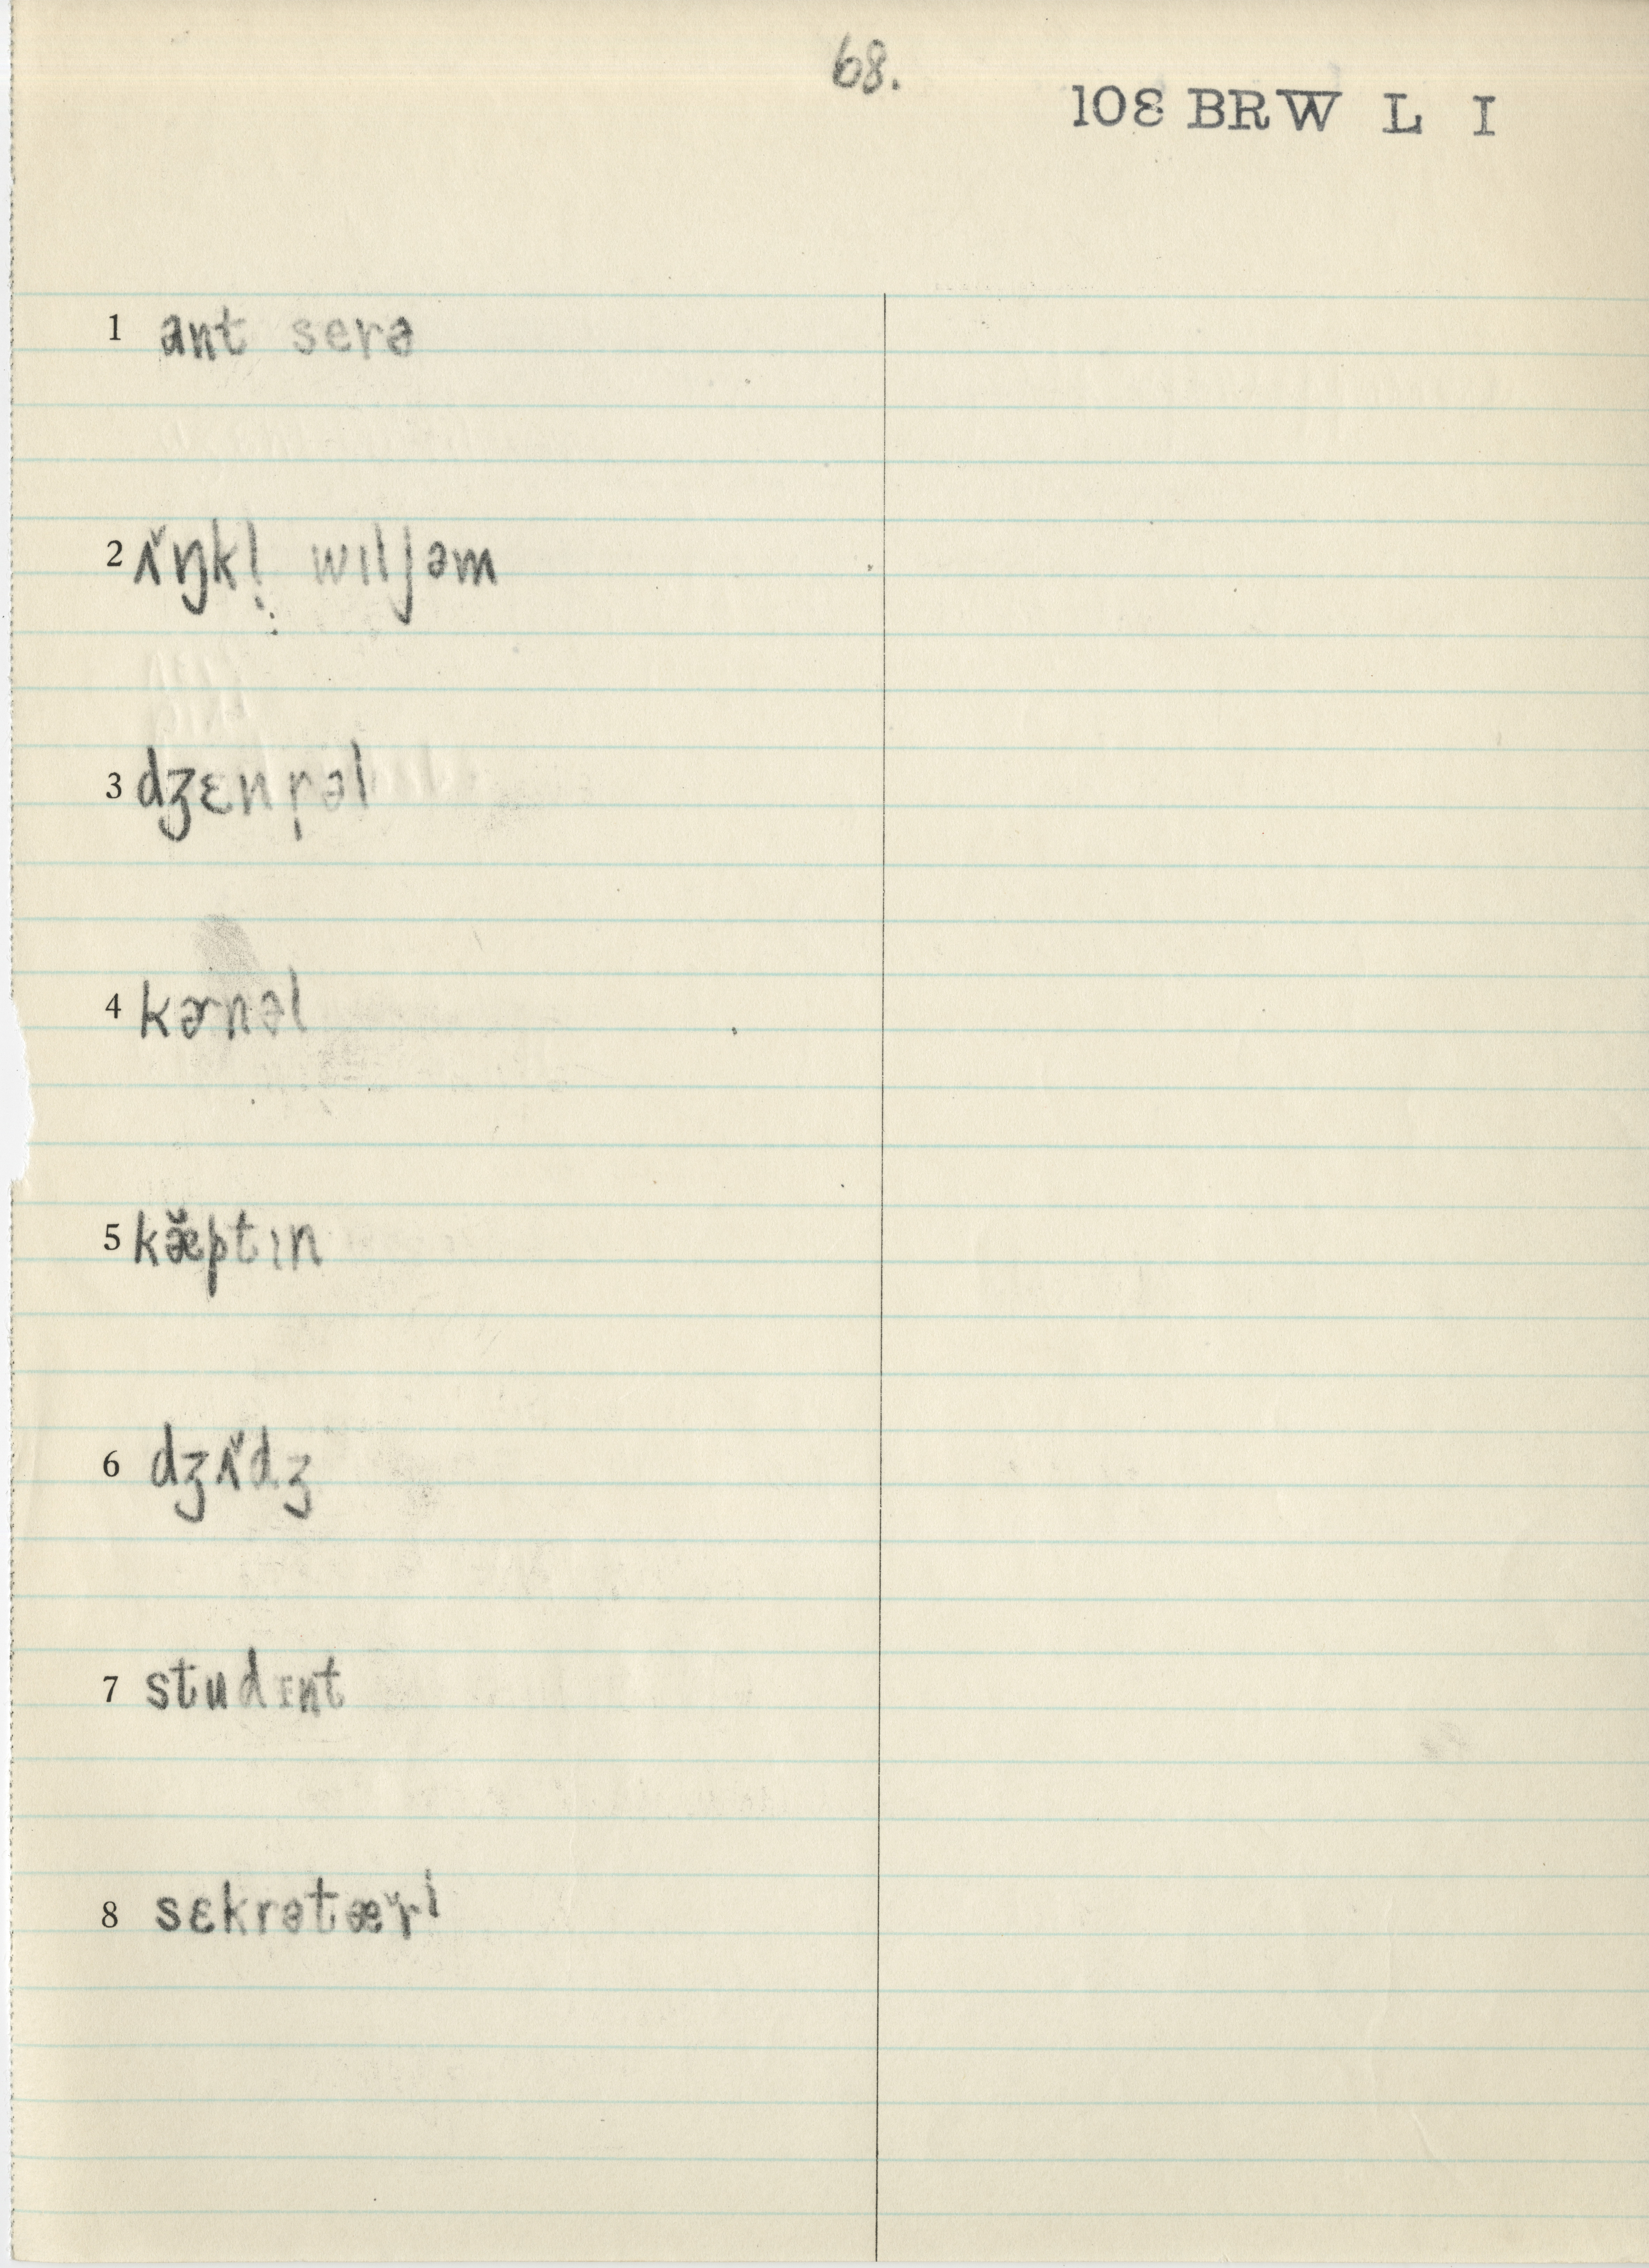 68.
108 BRW L I
1 ant serə
2 ʌ̌ŋkl̩ wɪljəm
3 dʒɛnr̩əl
4 kɚnəl
5 kæ̌ptɪn
6 dʒʌ̌dʒ
7 studɪnt
8 sɛkrətæ̌ri